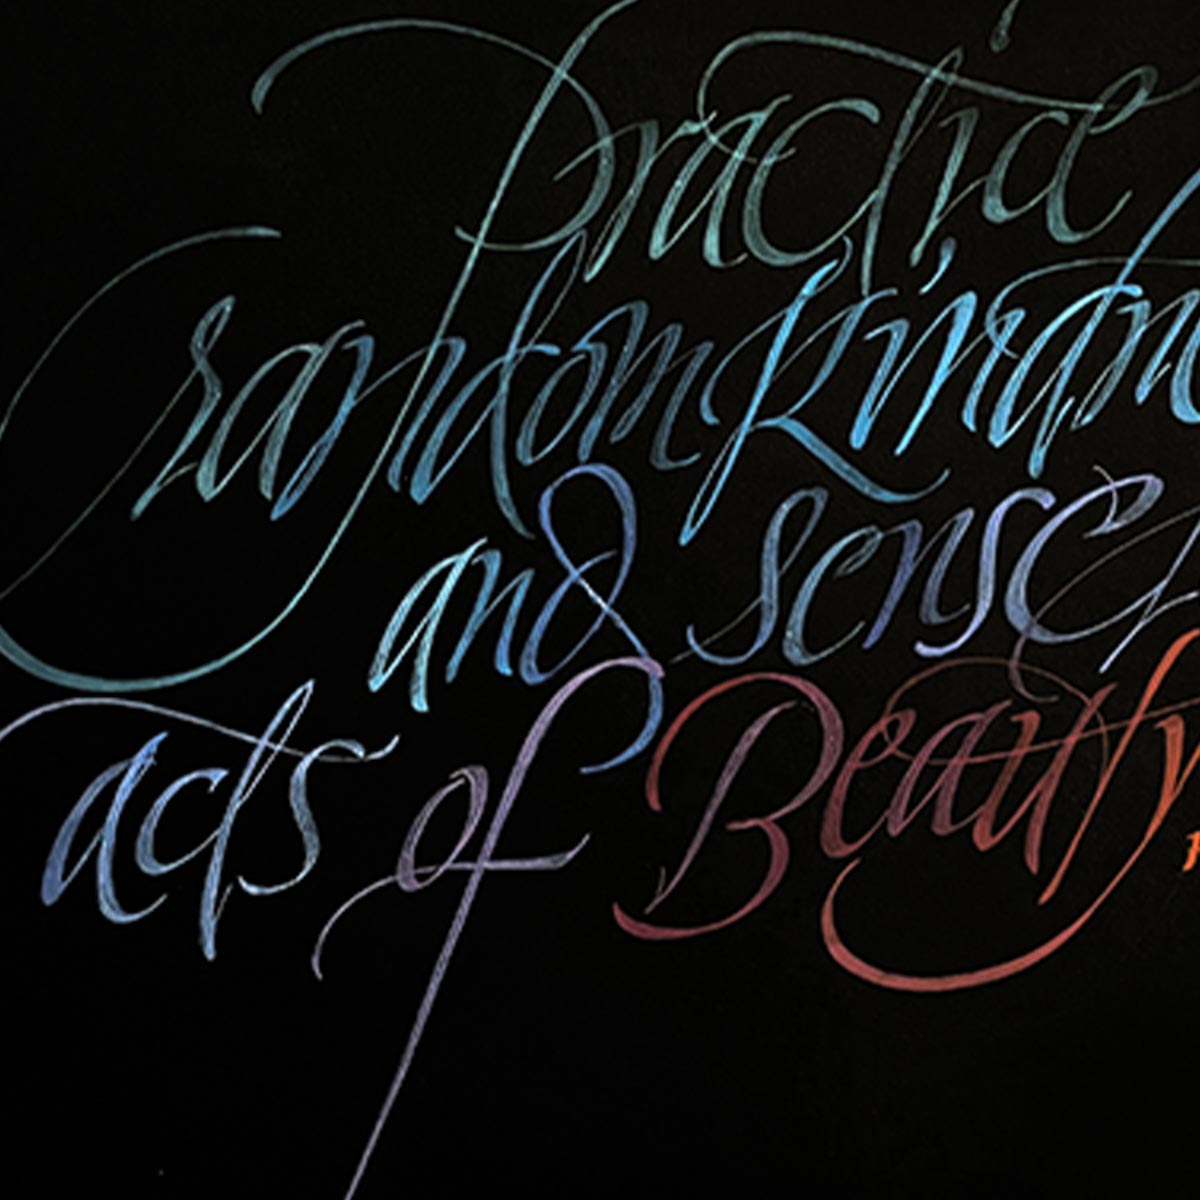 Practice
random kindn
and sense
acts of Beauty